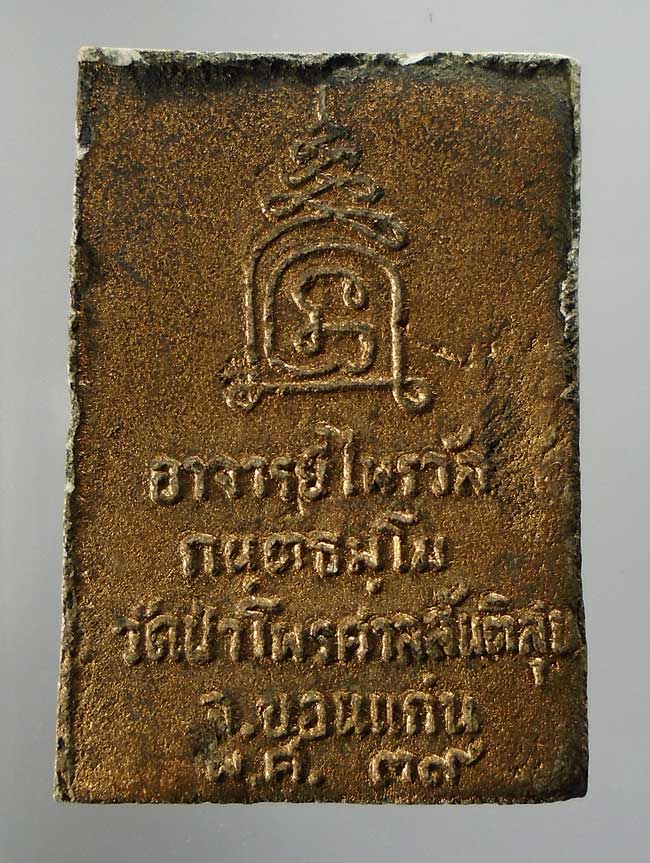 อาจารย์ไพรวัล
กนฺตธมฺโม
วัดป่าไพรศาลสันติสุข
จ.ขอนแก่น
พ.ศ. ๓๙